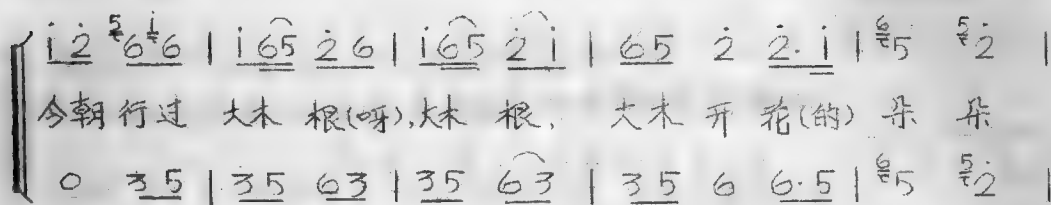 i̇ 2̇ ⁵6 ⁱ̇6 | i̇ 65 2̇ 6 | i̇ 65 2̇ i̇ | 65 2̇ 2̇· i̇ | ⁶5 ⁵2̇ |
今朝行过 大木 根(呀),大木 根, 大木 开 花(的) 朵 朵
0 35 | 35 63 | 35 63 | 35 6 6·5 | ⁶5 ⁵2̇ |